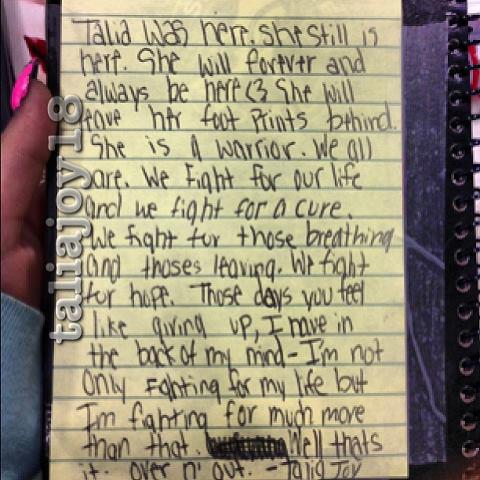 Talia was here. She still is
here. She will forever and
always be here <3 She will
leave her foot prints behind.
She is a warrior. We all
are. We fight for our life
and we fight for a cure.
We fight for those breathing
and thoses leaving. We fight
for hope. Those days you feel
like giving up, I have in
the back of my mind - I'm not
only fighting for my life but
Im fighting for much more
than that. Well thats
it. over n' out. - Talia Joy
taliajoy18